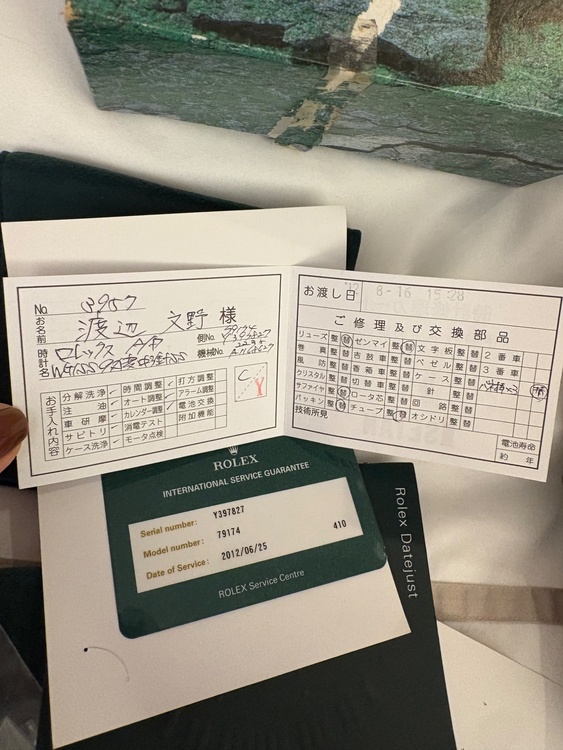 No 3957
お名前 渡辺 文野 様
時計名 ロレックス
側No. 79174
Y397827
機械No.
お手入れ内容
分解洗浄 ✓ 時間調整 ✓ 打方調整
注油 ✓ オート調整 ✓ アラーム調整
車研摩 ✓ カレンダー調整 ✓ 電池交換
サビトリ ✓ 消電テスト 付加機能
ケース洗浄 ✓ モータ点検
C Y
お渡し日 8-16 15:28
ご修理及び交換部品
リューズ 整 替 ゼンマイ 整 替 文字板 整 替 2番車
巻真 整 替 吉鼓車 整 替 ベゼル 整 替 3番車
風防 整 替 香箱車 整 替 ケース 整 替
クリスタル 整 替 切替車 整 替 針 整 替
サファイヤ 整 替 ロータ芯 整 替 回路 整 替
パッキン 整 替 チューブ 整 替 オシドリ 整 替
技術所見
電池寿命
約 年
ROLEX
INTERNATIONAL SERVICE GUARANTEE
Serial number: Y397827
Model number: 79174 410
Date of Service: 2012/06/25
ROLEX Service Centre
Rolex Datejust